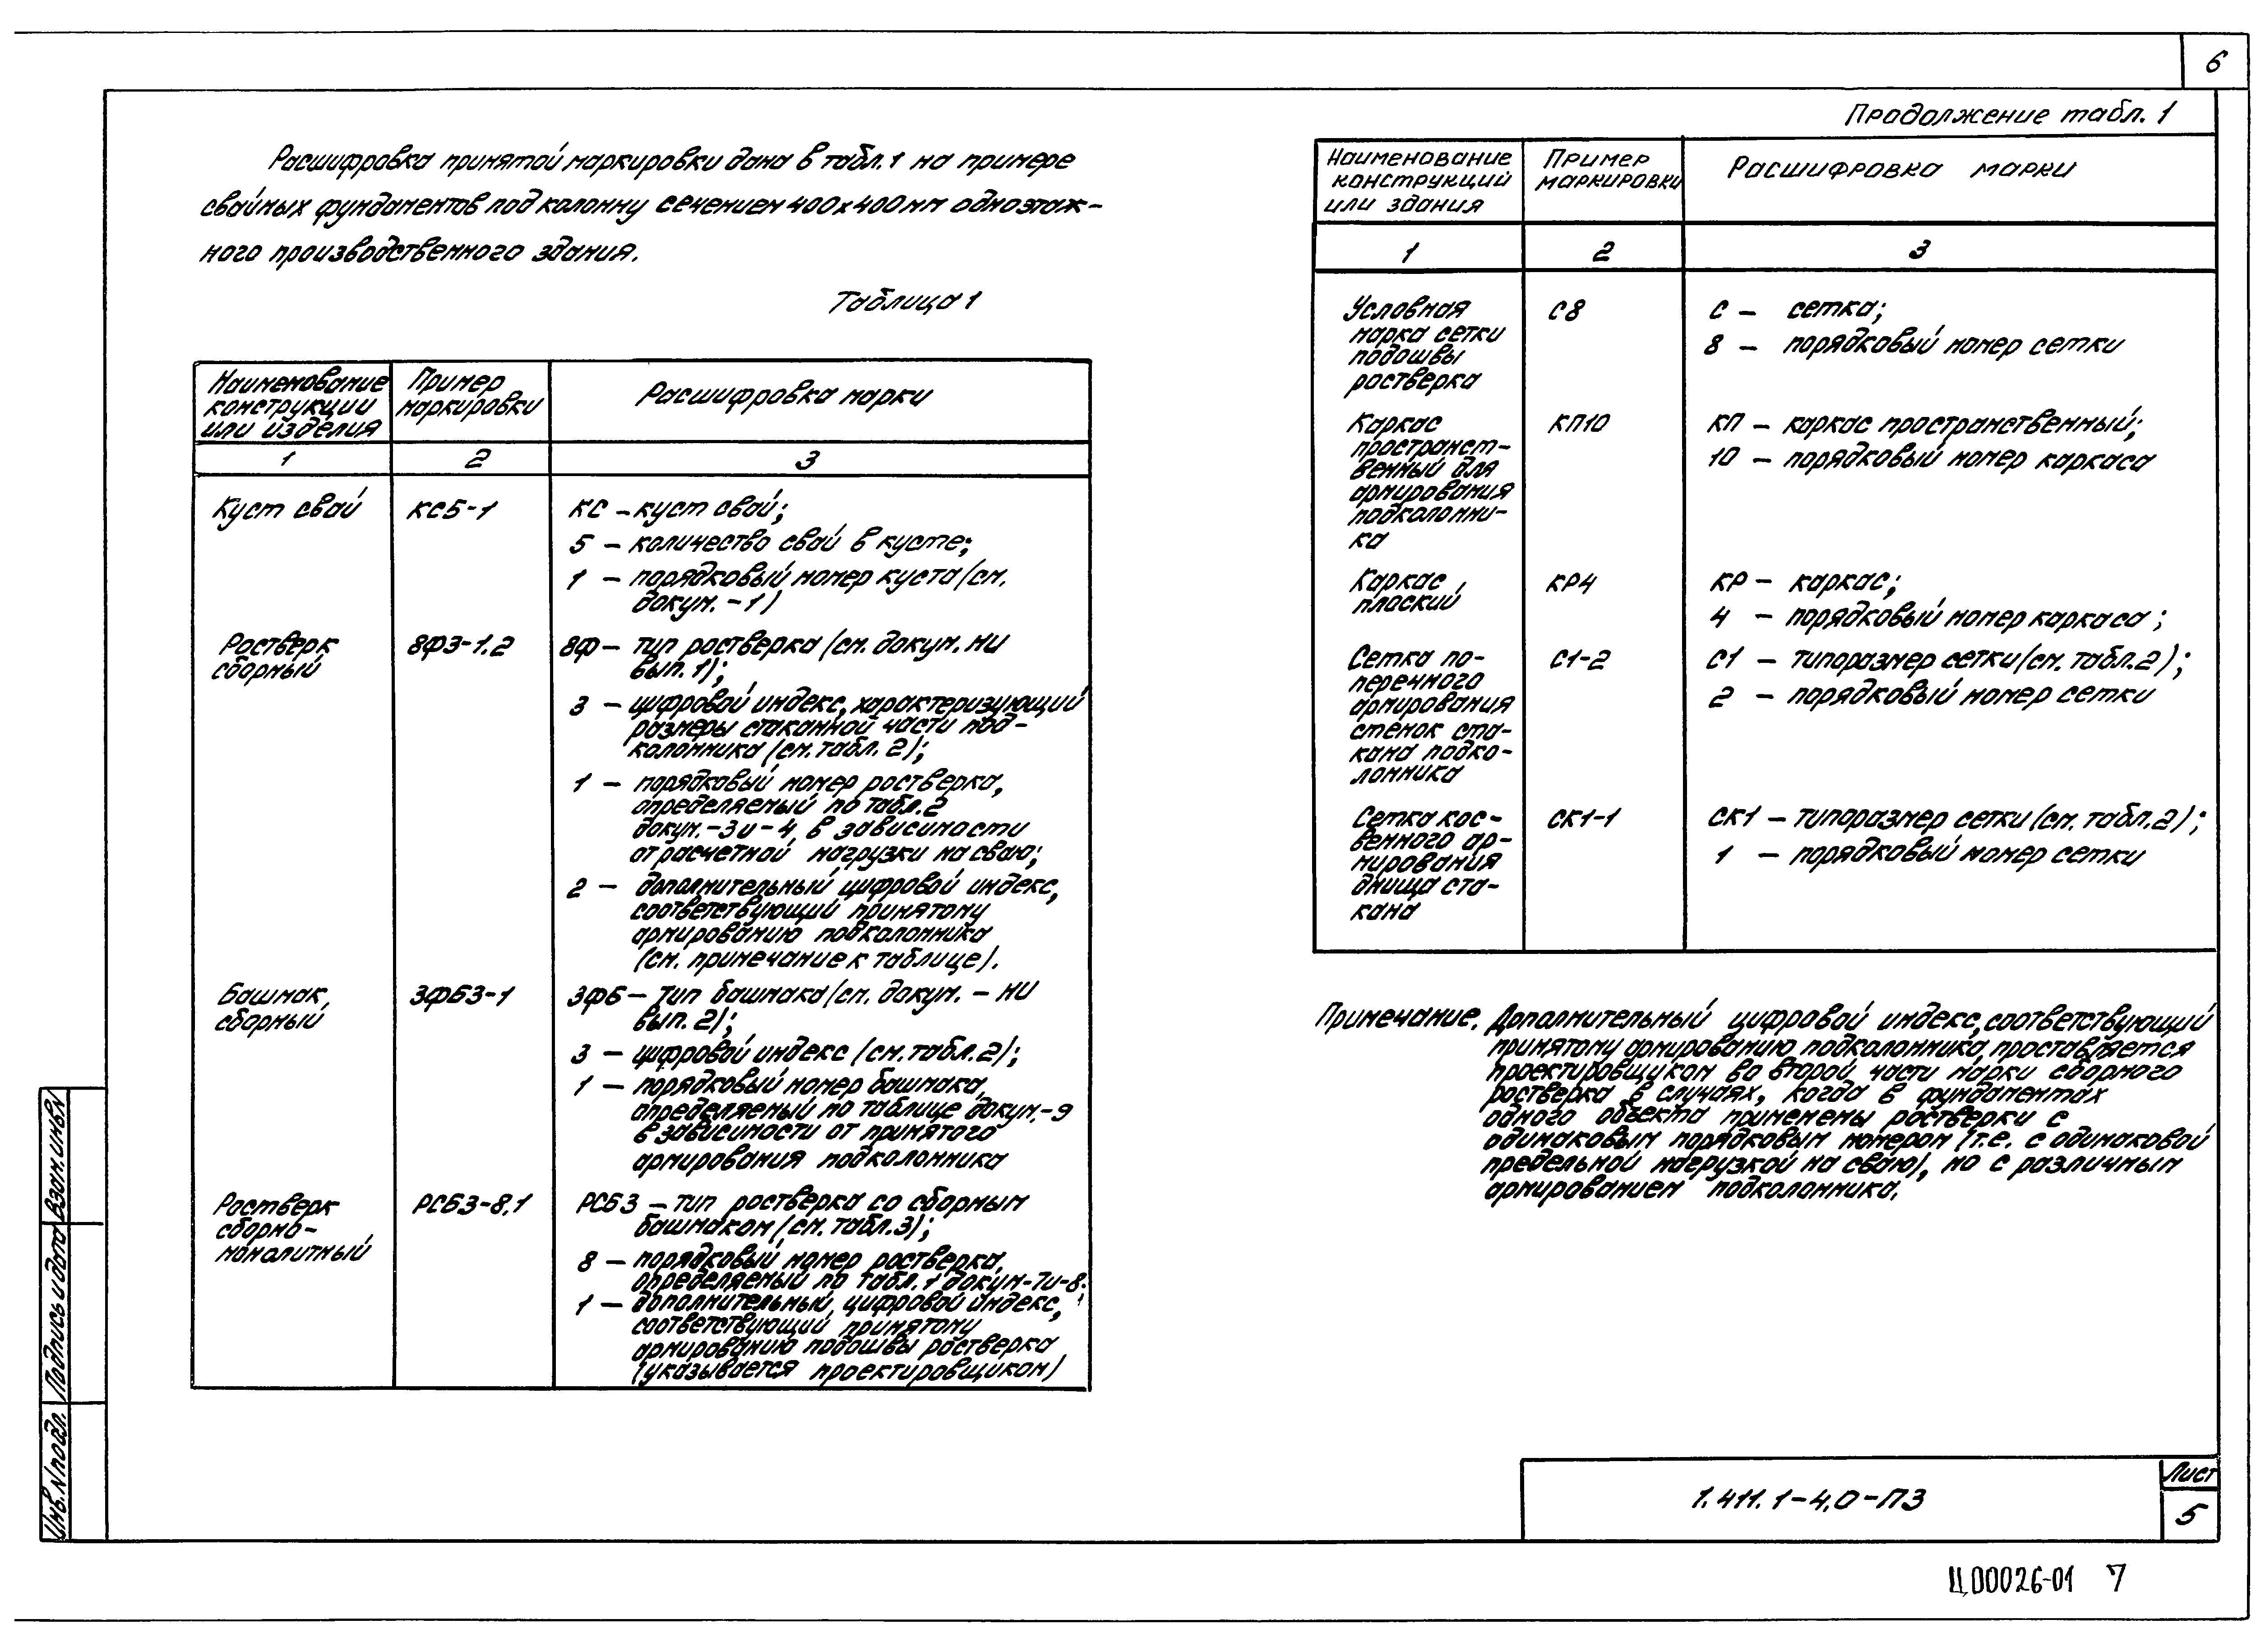 6
Расшифровка принятой маркировки дана в табл.1 на примере
свайных фундаментов под колонну сечением 400х400мм одноэтаж-
ного производственного здания.
Таблица 1
Наименование
конструкции
или изделия
Пример
маркировки
Расшифровка марки
1
2
3
Куст свай
КС5-1
КС - куст свай;
5 - количество свай в кусте;
1 - порядковый номер куста (см.
докум. -1)
Ростверк
сборный
8Ф3-1.2
8Ф - тип ростверка (см. докум. НИ
вып. 1);
3 - цифровой индекс, характеризующий
размеры стаканной части под-
колонника (см. табл. 2);
1 - порядковый номер ростверка,
определяемый по табл.2
докум. -3 и -4 в зависимости
от расчетной нагрузки на сваю;
2 - дополнительный цифровой индекс,
соответствующий принятому
армированию подколонника
(см. примечание к таблице).
Башмак
сборный
3ФБ3-1
3ФБ - тип башмака (см. докум. - НИ
вып. 2);
3 - цифровой индекс (см. табл.2);
1 - порядковый номер башмака,
определяемый по таблице докум. -9
в зависимости от принятого
армирования подколонника
Ростверк
сборно-
монолитный
РСБ3-8.1
РСБ3 - тип ростверка со сборным
башмаком (см. табл.3);
8 - порядковый номер ростверка,
определяемый по табл.1 докум-7и-8;
1 - дополнительный цифровой индекс,
соответствующий принятому
армированию подошвы ростверка
(указывается проектировщиком)
Продолжение табл. 1
Наименование
конструкций
или здания
Пример
маркировки
Расшифровка марки
1
2
3
Условная
марка сетки
подошвы
ростверка
С8
С - сетка;
8 - порядковый номер сетки
Каркас
пространст-
венный для
армирования
подколонни-
ка
КП10
КП - каркас пространственный;
10 - порядковый номер каркаса
Каркас
плоский
КР4
КР - каркас;
4 - порядковый номер каркаса;
Сетка по-
перечного
армирования
стенок ста-
кана подко-
лонника
С1-2
С1 - типоразмер сетки (см. табл.2);
2 - порядковый номер сетки
Сетка кос-
венного ар-
мирования
днища ста-
кана
СК1-1
СК1 - типоразмер сетки (см. табл.2);
1 - порядковый номер сетки
Примечание. Дополнительный цифровой индекс, соответствующий
принятому армированию подколонника, проставляется
проектировщиком во второй части марки сборного
ростверка в случаях, когда в фундаментах
одного объекта применены ростверки с
одинаковым порядковым номером (т.е. с одинаковой
предельной нагрузкой на сваю), но с различным
армированием подколонника.
Инв. N подл.
Подпись и дата
Взам. инв. N
1.411.1-4.0-ПЗ
Лист
5
Ц00026-01 7